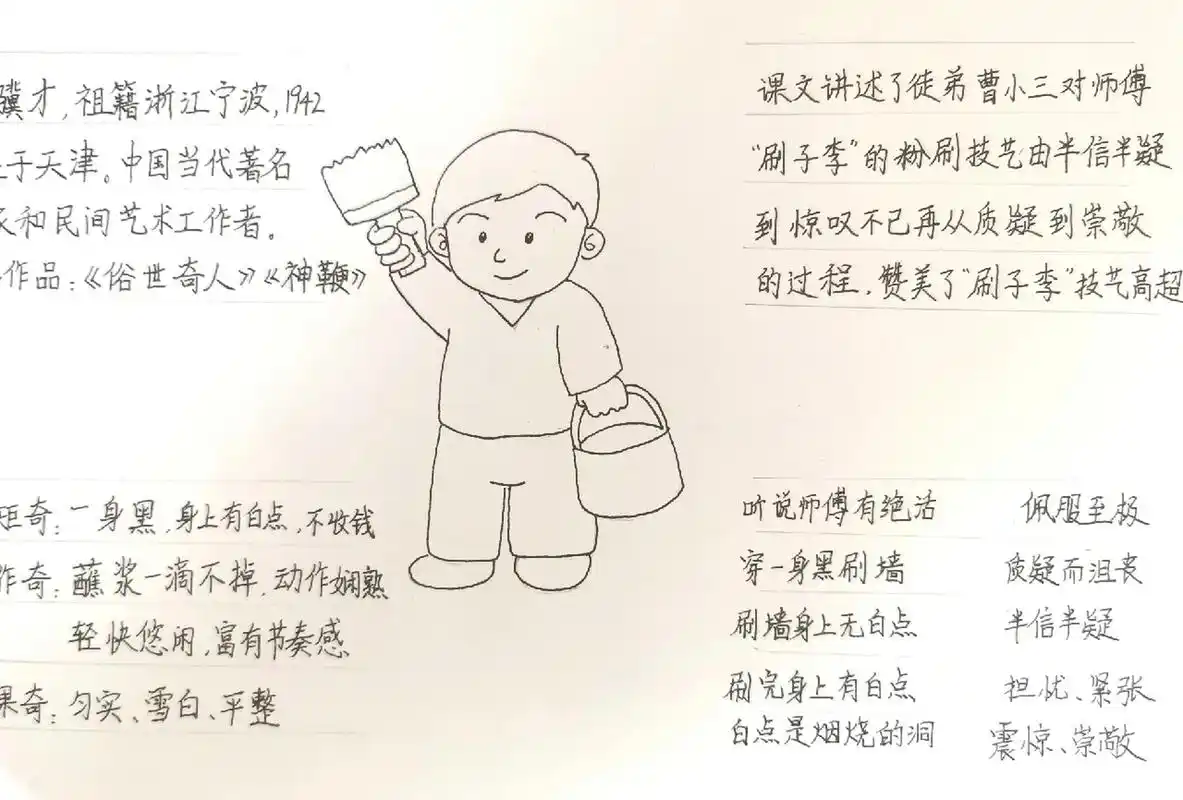 骥才,祖籍浙江宁波,1942
于天津。中国当代著名
和民间艺术工作者。
作品:《俗世奇人》《神鞭》
课文讲述了徒弟曹小三对师傅
“刷子李”的粉刷技艺由半信半疑
到惊叹不已再从质疑到崇敬
的过程.赞美了“刷子李”技艺高超
矩奇:一身黑,身上有白点,不收钱
作奇:蘸浆一滴不掉,动作娴熟
轻快悠闲,富有节奏感
果奇:匀实、雪白、平整
听说师傅有绝活 佩服至极
穿一身黑刷墙 质疑而沮丧
刷墙身上无白点 半信半疑
刷完身上有白点 担忧、紧张
白点是烟烧的洞 震惊、崇敬